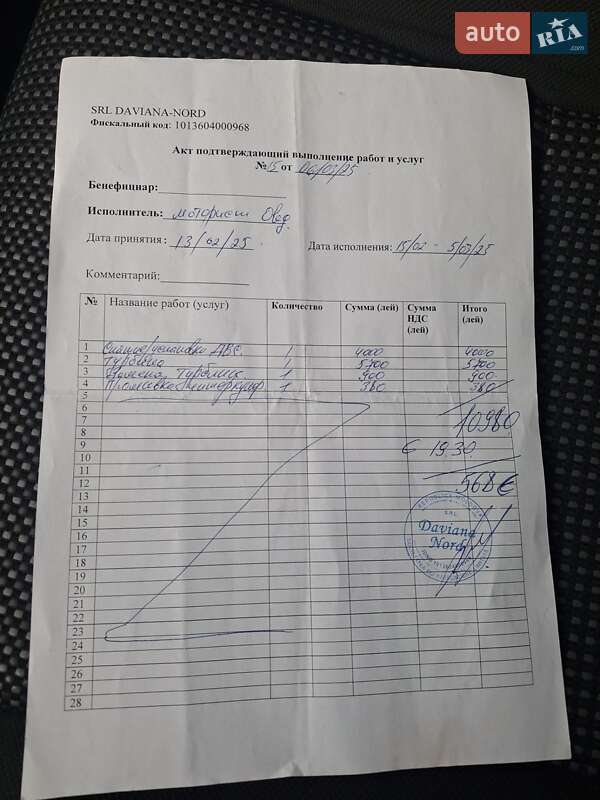 auto RIA.com
SRL DAVIANA-NORD
Фискальный код: 1013604000968
Акт подтверждающий выполнение работ и услуг
№ 15 от 06/03/25
Бенефициар:
Исполнитель: моторист Олег
Дата принятия: 13/02/25. Дата исполнения: 15/02 - 5/03/25
Комментарий:
№ Название работ (услуг) Количество Сумма (лей) Сумма НДС (лей) Итого (лей)
1 Снятие/установка ДВС. 1 4000 4000
2 Турбина 1 5700 5700
3 Замена турбины 1 900 900
4 Промывка интеркулер 1 380 380
5
6
7 10980
8
9 € 19.30
10
11
12 568 €
13
14
15
16
17
18
19
20
21
22
23
24
25
26
27
28
S.R.L.
Daviana
Nord